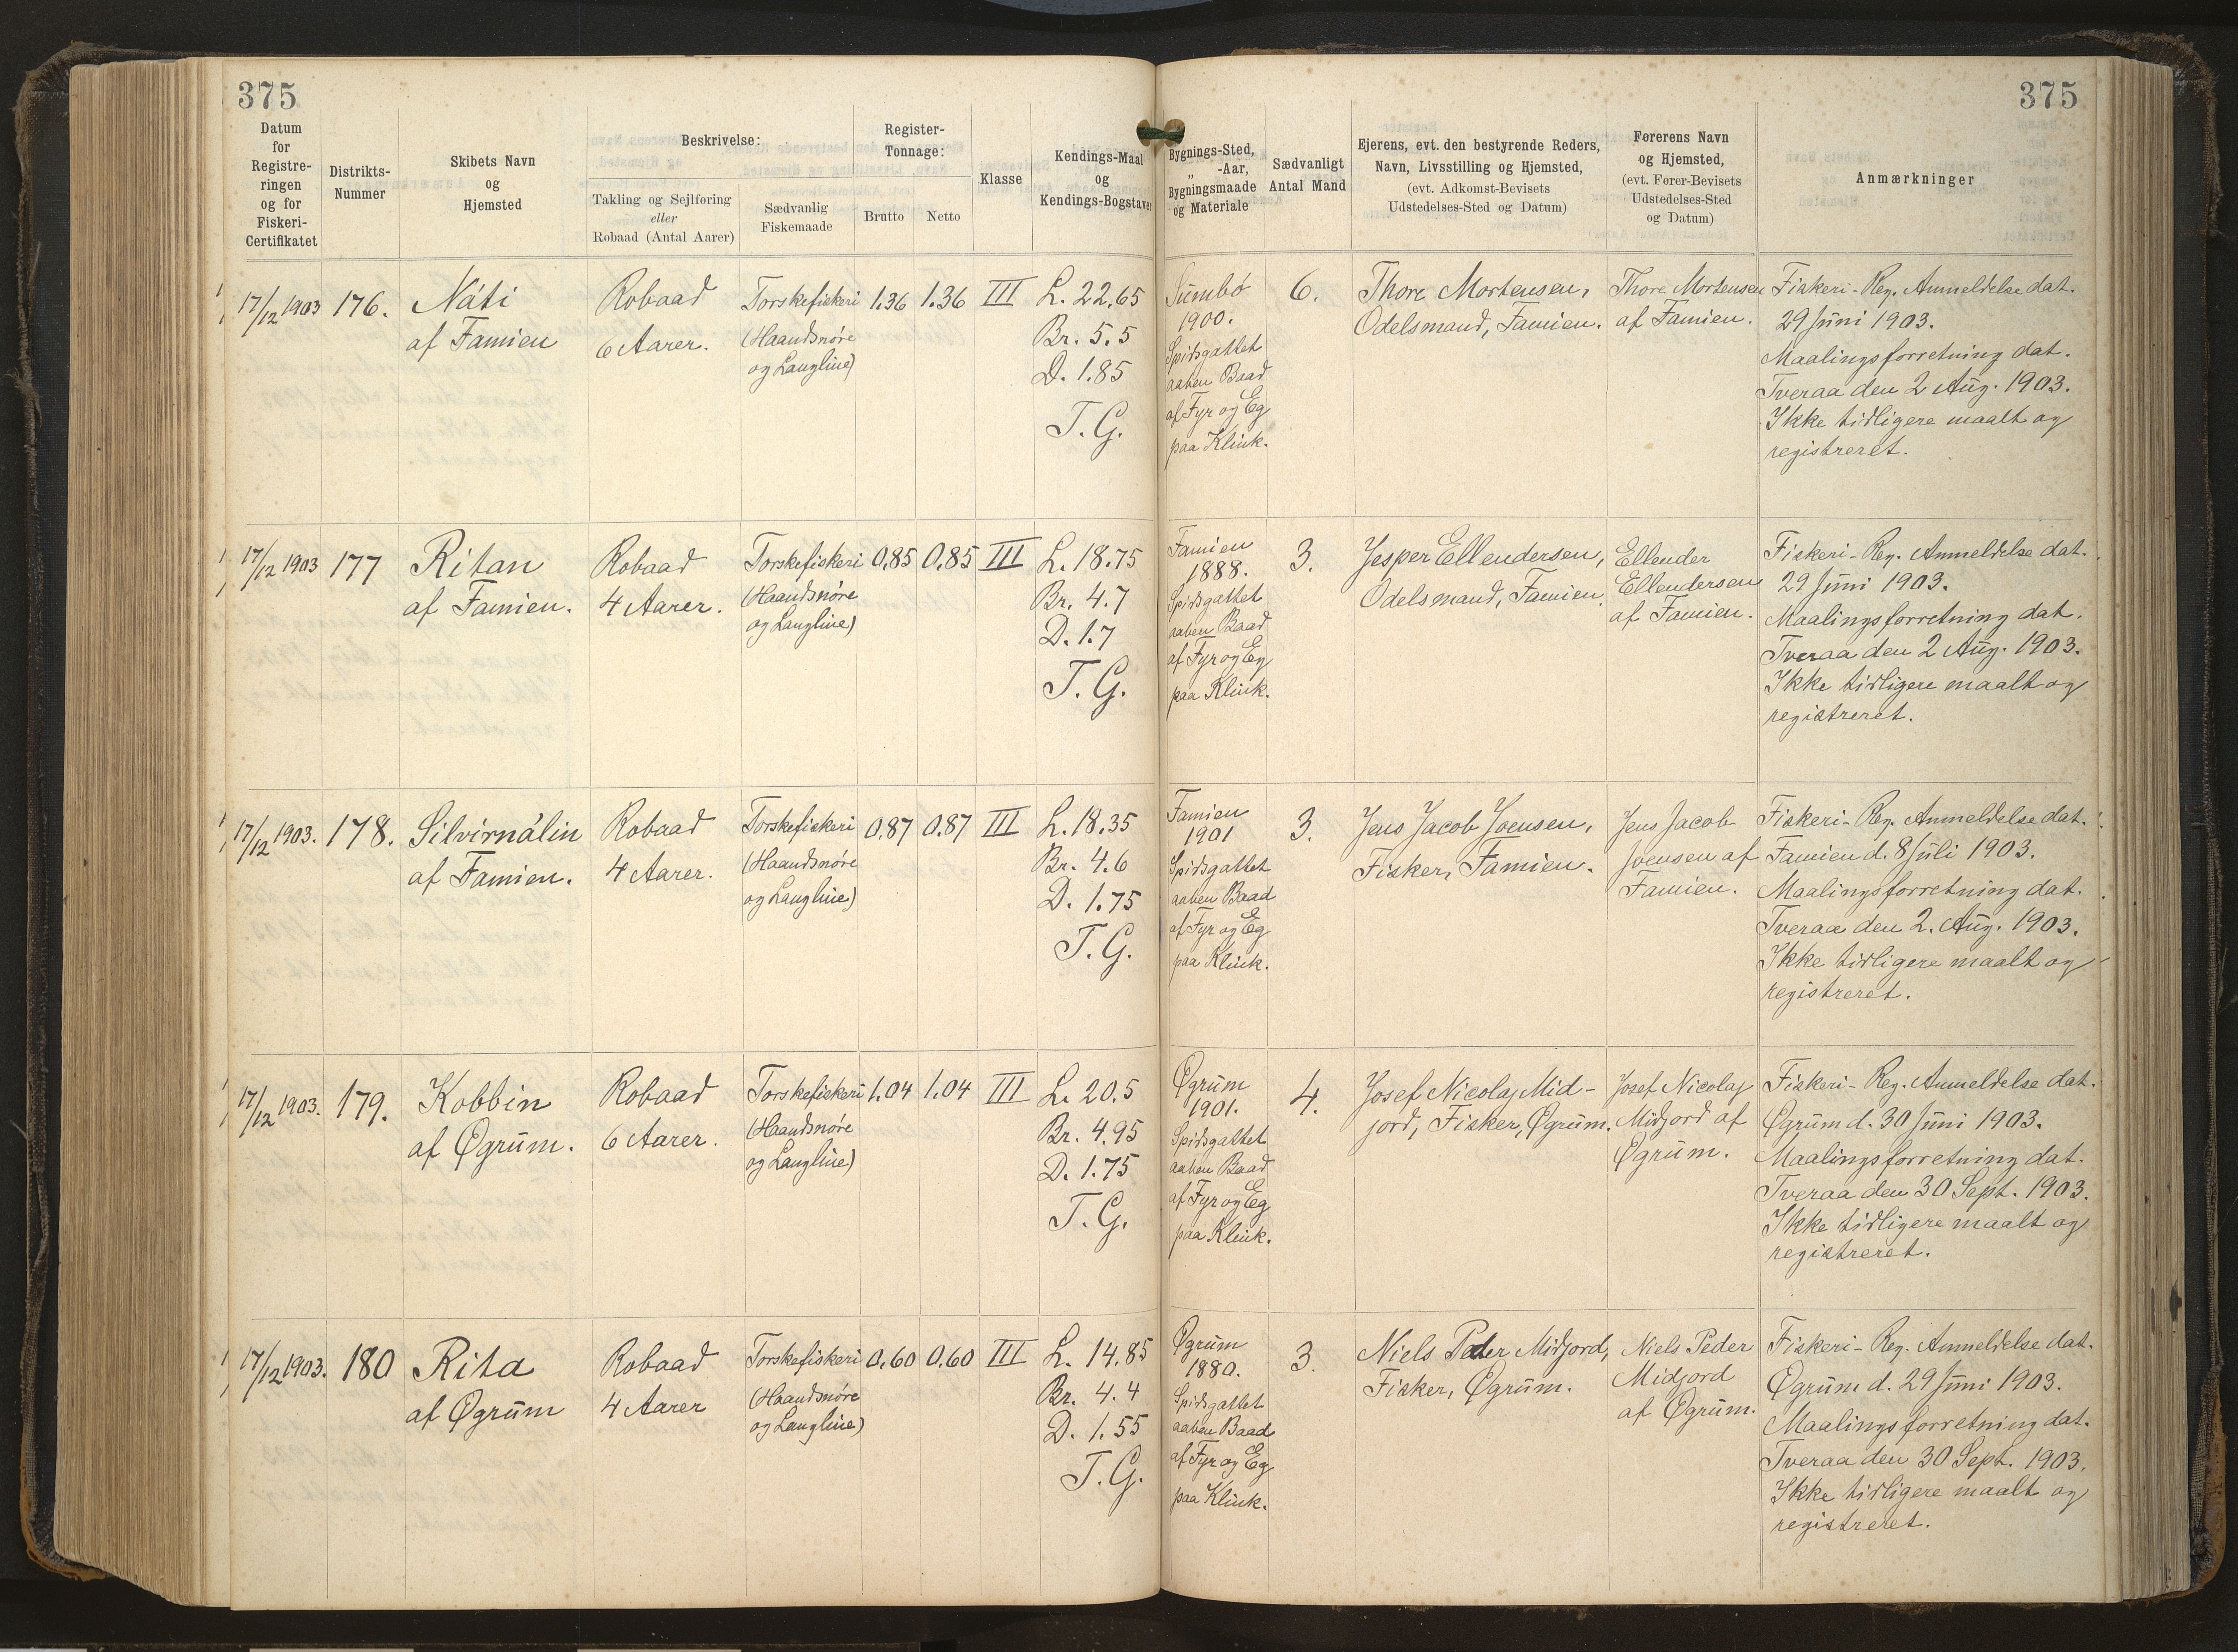 375
375
Datum
for
Registre-
ringen
og for
Fiskeri-
Certifikatet
Distrikts-
Nummer
Skibets Navn
og
Hjemsted
Beskrivelse:
Takling og Sejlføring
eller
Robaad (Antal Aarer)
Sædvanlig
Fiskemaade
Register-
Tonnage:
Brutto
Netto
Klasse
Kendings-Maal
og
Kendings-Bogstaver
Bygnings-Sted,
„ -Aar,
Bygningsmaade
og Materiale
Sædvanligt
Antal Mand
Ejerens, evt. den bestyrende Reders,
Navn, Livsstilling og Hjemsted,
(evt. Adkomst-Bevisets
Udstedelses-Sted og Datum)
Førerens Navn
og Hjemsted,
(evt. Fører-Bevisets
Udstedelses-Sted
og Datum)
Anmærkninger
17/12 1903
176.
Náti
af Famien
Robaad
6 Aarer.
Torskefiskeri
(Haandsnøre
og Langline)
1.36
1.36
III
L. 22,65
Br. 5.5
D. 1.85
T. G.
Sumbø
1900.
Spidsgattet
aaben Baad
af Fyr og Eg
paa Klink.
6.
Thore Mortensen,
Odelsmand, Famien.
Thore Mortensen
af Famien.
Fiskeri-Reg. Anmeldelse dat.
29 Juni 1903.
Maalingsforretning dat.
Tveraa den 2 Aug. 1903.
Ikke tidligere maalt og
registreret.
17/12 1903
177
Ritan
af Famien.
Robaad
4 Aarer.
Torskefiskeri
(Haandsnøre
og Langline)
0,85
0,85
III
L. 18.75
Br. 4.7
D. 1.7
T. G.
Famien
1888.
Spidsgattet
aaben Baad
af Fyr og Eg
paa Klink.
3.
Jesper Ellendersen,
Odelsmand, Famien.
Ellender
Ellendersen
af Famien.
Fiskeri-Reg. Anmeldelse dat.
29 Juni 1903.
Maalingsforretning dat.
Tveraa den 2 Aug. 1903.
Ikke tidligere maalt og
registreret.
17/12 1903.
178.
Silvirnálin
af Famien.
Robaad
4 Aarer.
Torskefiskeri
(Haandsnøre
og Langline)
0,87
0,87
III
L. 18,35
Br. 4.6
D. 1.75
T. G.
Famien
1901
Spidsgattet
aaben Baad
af Fyr og Eg
paa Klink.
3.
Jens Jacob Joensen,
Fisker, Famien.
Jens Jacob
Joensen af
Famien.
Fiskeri-Reg. Anmeldelse dat.
Famien d. 8 Juli 1903.
Maalingsforretning dat.
Tveraa den 2. Aug. 1903.
Ikke tidligere maalt og
registreret.
17/12 1903.
179.
Kobbin
af Øgrum.
Robaad
6 Aarer.
Torskefiskeri
(Haandsnøre
og Langline)
1.04
1.04
III
L. 20.5
Br. 4.95
D. 1.75
T. G.
Øgrum
1901.
Spidsgattet
aaben Baad
af Fyr og Eg
paa Klink.
4.
Josef Nicolaj Mid-
jord, Fisker, Øgrum.
Josef Nicolaj
Midjord af
Øgrum.
Fiskeri-Reg. Anmeldelse dat.
Øgrum d. 30 Juni 1903.
Maalingsforretning dat.
Tveraa den 30 Sept. 1903.
Ikke tidligere maalt og
registreret.
17/12 1903.
180
Rita
af Øgrum
Robaad
4 Aarer
Torskefiskeri
(Haandsnøre
og Langline)
0,60
0,60
III
L. 14.85
Br. 4.4
D. 1.55
T. G.
Øgrum
1880.
Spidsgattet
aaben Baad
af Fyr og Eg
paa Klink.
3.
Niels Peder Midjord,
Fisker, Øgrum.
Niels Peder
Midjord
af Øgrum.
Fiskeri-Reg. Anmeldelse dat.
Øgrum d. 29 Juni 1903.
Maalingsforretning dat.
Tveraa den 30 Sept. 1903.
Ikke tidligere maalt og
registreret.